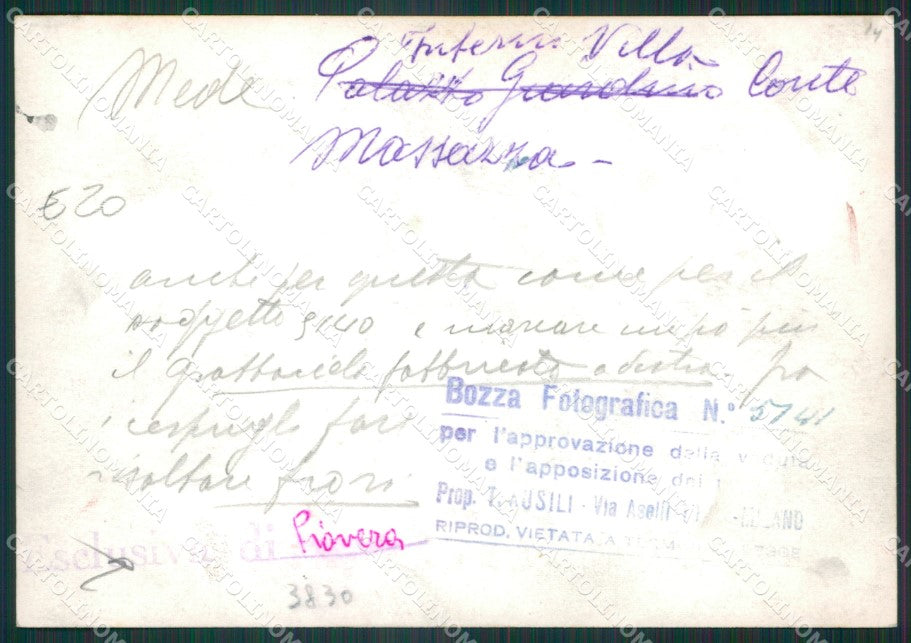 14
Interni Villa
Mede Palazzo Giardino Conte
Massazza -
€ 20
anche per questa come per il
soggetto 5140 e marcare un po' più
il fabbricato a destra. fra
i cespugli fare
risaltare fiori
Bozza Fotografica N.° 5141
per l'approvazione della veduta
e l'apposizione del
Prop. T. AUSILI - Via Aselli MILANO
RIPROD. VIETATA A
Esclusività di Piovera
3830
CARTOLINOMANIA